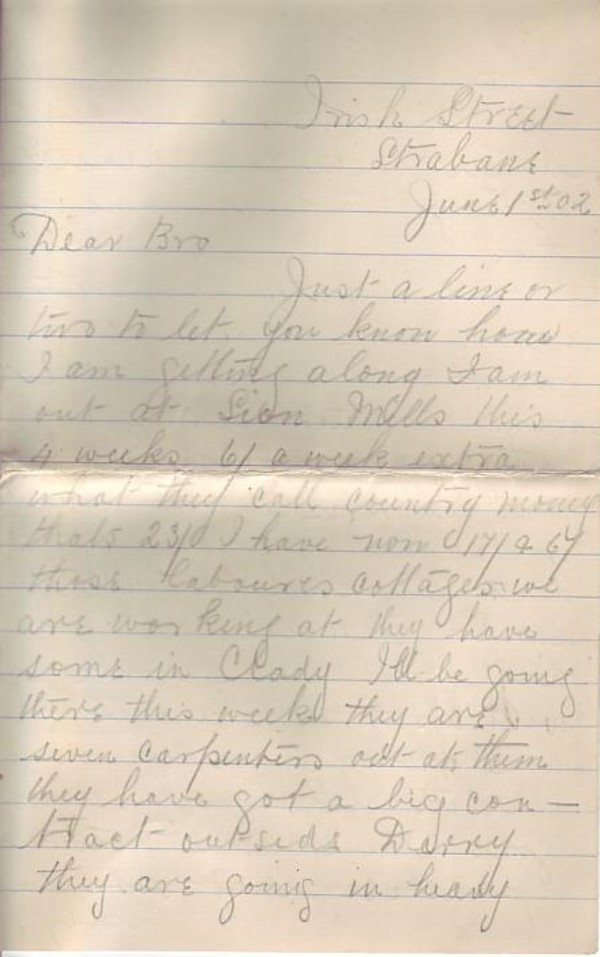 Irish Street
Strabane
June 1st 02
Dear Bro
Just a line or
two to let you know how
I am getting along I am
out at Sion Mills this
4 weeks 6/ a week extra
what they call country money
thats 23/ I have now 17/ & 6/
those Laboures cottages we
are working at they have
some in Clady Ill be going
there this week they are
seven carpenters out at them
they have got a big con—
tract outside Derry
they are going in heavy